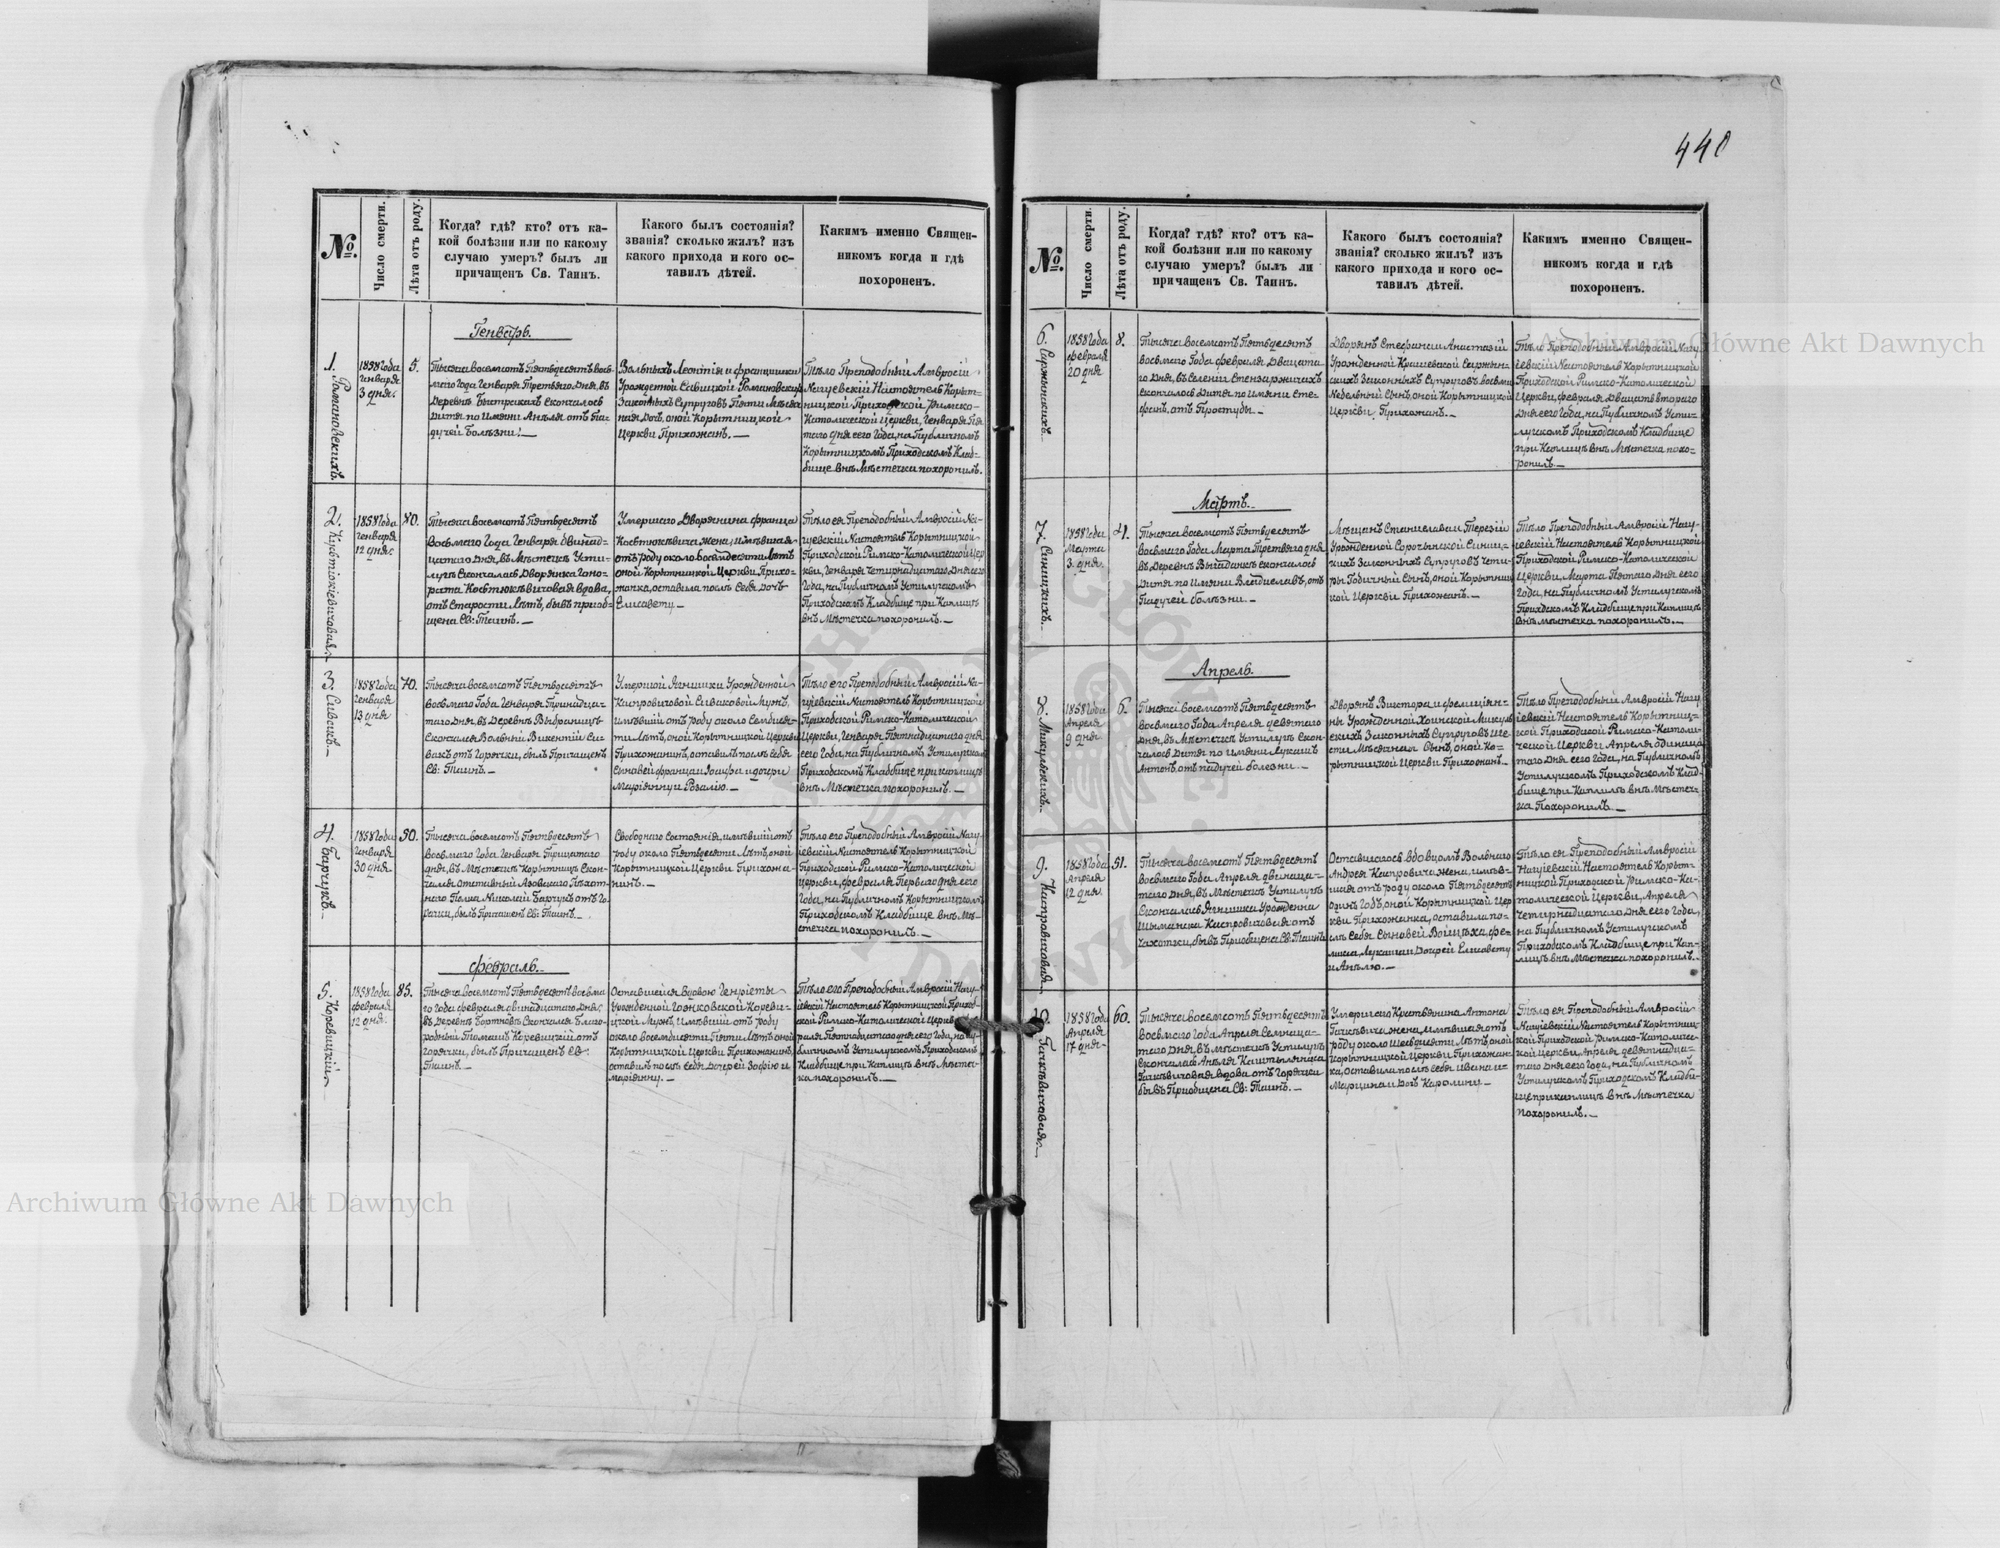 440
№.
Число смерти.
Лѣта отъ роду.
Когда? гдѣ? кто? отъ ка-
кой болѣзни или по какому
случаю умеръ? былъ ли
причащенъ Св. Таинъ.
Какого былъ состоянія?
званія? сколько жилъ? изъ
какого прихода и кого ос-
тавилъ дѣтей.
Какимъ именно Священ-
никомъ когда и гдѣ
похороненъ.
Генварь.
1.
Романовскихъ.
1858 года
Генваря
3 дня.
5.
Тысяча восемсотъ Пятьдесятъ вось-
маго года Генваря Третьяго дня, въ
Деревнѣ Быстракахъ Скончалось
Дитя по Имяни Анѣля отъ Па-
дучей Болѣзни. —
Вольныхъ Леонтія и Францишки
Урожденной Савицкой Романовскихъ
Законныхъ Супруговъ Пяти Мѣсяч-
ная Дочь, оной Корытницкой
Церкви Прихожанъ. —
Тѣло Преподобный Амвросій
Нацѣевскій Настоятель Корыт-
ницкой Приходской Римско-
Католической Церкви, Генваря Пя-
таго дня сего Года, на Публичномъ
Корытницкомъ Приходскомъ Клад-
бище внѣ Мѣстечка похоронилъ.
2.
1858 года
Генваря
12 дня.
80.
Тысяча восемсотъ Пятьдесятъ
Восьмаго Года Генваря двѣнад-
цатаго Дня, въ Мѣстечкѣ Усти-
лугѣ Скончалась Дворянка Гоно-
рата Костюкевичовая вдова,
отъ Старости Лѣтъ, бывъ приоб-
щена Св: Таинъ. —
Умершаго Дворянина Франца
Костюкевича жена, имѣвшая
отъ роду около восемдесяти Лѣтъ
оной Корытницкой Церкви Прихо-
жанка, оставила послѣ Себя дочь
Елисавету —
Тѣло ея Преподобный Амвросій На-
цѣевскій Настоятель Корытницкой
Приходской Римско-Католической Цер-
кви, Генваря Четырнадцатаго Дня сего
Года, на Публичномъ Устилугскомъ
Приходскомъ Кладбище при Каплицѣ
внѣ Мѣстечка похоронилъ. —
3.
Сивакъ.
1858 года
Генваря
13 дня
70.
Тысяча восемсотъ Пятьдесятъ
восьмаго Года Генваря Тринадца-
таго Дня, въ Деревнѣ Выдраницѣ
Скончался Вольный Викентій Си-
вакъ отъ Горячки, былъ Причащенъ
Св: Таинъ. —
Умершой Ягнишки Урожденной
Каспровичовой Сиваковой Мужъ,
имѣвшій отъ роду около Семдеся-
ти Лѣтъ, оной Корытницкой Церкви
Прихожанинъ, оставилъ послѣ себя
Сыновей Францa и Іосифа и дочери
Маріянну и Розалію. —
Тѣло его Преподобный Амвросій На-
цѣевскій Настоятель Корытницкой
Приходской Римско-Католической
Церкви, Генваря Пятнадцатаго дня
сего Года, на Публичномъ Устилугскомъ
Приходскомъ Кладбище при каплицѣ
внѣ Мѣстечка похоронилъ. —
4.
Барчукъ.
1858 года
Генваря
30 дня.
50.
Тысяча восемсотъ Пятьдесятъ
восьмаго Года Генваря Тридцатаго
дня, въ Мѣстечкѣ Корытницѣ Скон-
чался отставный Азовскаго Пѣхот-
наго Полка Николай Барчукъ отъ Го-
рячки, былъ Причащенъ Св: Таинъ. —
Свободнаго Состоянія, имѣвшій отъ
роду около Пятьдесяти Лѣтъ, оной
Корытницкой Церкви Прихожа-
нинъ. —
Тѣло его Преподобный Амвросій Нацѣ-
евскій Настоятель Корытницкой
Приходской Римско-Католической
Церкви, Февраля Перваго дня сего
Года, на Публичномъ Корытницкомъ
Приходскомъ Кладбище внѣ Мѣ-
стечка похоронилъ. —
Февраль.
5.
Коревицкій
1858 года
Февраля
12 дня.
85.
Тысяча восемсотъ Пятьдесятъ восьма-
го года Февраля двѣнадцатаго Дня,
въ Деревнѣ Бортновѣ Скончался Благо-
родный Томашъ Коревицкій отъ
горячки, былъ Причащенъ Св:
Таинъ. —
Оставшейся вдовою Генріеты
Урожденной Коревиц-
цкой Мужъ, имѣвшій отъ роду
около восемдесяти Пяти Лѣтъ оной
Корытницкой Церкви Прихожанинъ
оставилъ послѣ себя Дочерей Зофію и
Маріянну. —
Тѣло его Преподобный Амвросій Нацѣ-
евскій Настоятель Корытницкой Приход-
ской Римско-Католической Церкви Фев-
раля Пятнадцатаго дня сего Года, на Пу-
бличномъ Устилугскомъ Приходскомъ
Кладбище при Каплицѣ внѣ Мѣстеч-
ка похоронилъ. —
№.
Число смерти.
Лѣта отъ роду.
Когда? гдѣ? кто? отъ ка-
кой болѣзни или по какому
случаю умеръ? былъ ли
причащенъ Св. Таинъ.
Какого былъ состоянія?
званія? сколько жилъ? изъ
какого прихода и кого ос-
тавилъ дѣтей.
Какимъ именно Священ-
никомъ когда и гдѣ
похороненъ.
6.
1858 года
Февраля
20 дня
8.
Тысяча восемсотъ Пятьдесятъ
восьмаго Года Февраля Двадцата-
го Дня, въ Селеніи Стензаржичахъ
скончалось Дитя по имяни Сте-
фанъ, отъ Простуды. —
Дворянъ Стефана и Анастазіи
Урожденной Крашевской
Законныхъ Супруговъ восьми
Недѣльный Сынъ, оной Корытницкой
Церкви Прихожанъ. —
Тѣло Преподобный Амвросій Нацѣ-
евскій Настоятель Корытницкой
Приходской Римско-Католической
Церкви, Февраля Двадцать втораго
Дня сего Года, на Публичномъ Усти-
лугскомъ Приходскомъ Кладбище
при Каплицѣ внѣ Мѣстечка похо-
ронилъ. —
Мартъ.
7.
Синицкихъ.
1858 года
Марта
3 дня.
4.
Тысяча восемсотъ Пятьдесятъ
восьмаго Года Марта Третьяго дня
въ Деревнѣ скончалось
Дитя по Имяни Владиславъ, отъ
Падучей болѣзни. —
Мѣщанъ Станислава и Терезіи
Урожденной Сорочинской Синиц-
кихъ Законныхъ Супруговъ Четы-
ры Годичный Сынъ, оной Корытниц-
кой Церкви Прихожанъ. —
Тѣло Преподобный Амвросій Нацѣ-
евскій Настоятель Корытницкой
Приходской Римско-Католической
Церкви, Марта Пятаго Дня сего
Года, на Публичномъ Устилугскомъ
Приходскомъ Кладбище при Каплицѣ
внѣ мѣстечка похоронилъ. —
Апрель.
8.
Микульскихъ.
1858 года
Апреля
9 дня
6.
Тысяча восемсотъ Пятьдесятъ
восьмаго Года Апреля девятаго
Дня, въ Мѣстечкѣ Устилугѣ Скон-
чалось Дитя по имяни Лукашъ
Антонъ, отъ падучей болезни. —
Дворянъ Виктора и Фелиціян-
ны Урожденной Хоинской Микуль-
скихъ Законныхъ Супруговъ Ше-
сти Мѣсячный Сынъ, оной Ко-
рытницкой Церкви Прихожанъ. —
Тѣло Преподобный Амвросій Нацѣ-
евскій Настоятель Корытниц-
кой Приходской Римско-Католи-
ческой Церкви Апреля одинадца-
таго Дня сего Года, на Публичномъ
Устилугскомъ Приходскомъ Клад-
бище при Каплицѣ внѣ Мѣстеч-
ка Похоронилъ. —
9.
Каспровичовая
1858 года
Апреля
12 дня.
51.
Тысяча восемсотъ Пятьдесятъ
восьмаго Года Апреля двѣнадца-
таго Дня, въ Мѣстечкѣ Устилугѣ
Скончалась Ягнишка Урожденна
Шыманска Каспровичовая отъ
чахотки, бывъ Приобщена Св: Таинъ
Оставшагося вдовцомъ Вольнаго
Андрея Каспровича жена, имѣв-
шая отъ роду около Пятьдесятъ
одинъ Годъ, оной Корытницкой Цер-
кви Прихожанка, оставила по-
слѣ Себя Сыновей Войцѣха, Фе-
ликса, Лукаша и Дочерей Елисавету
и Анѣлю. —
Тѣло ея Преподобный Амвросій
Нацѣевскій Настоятель Корыт-
ницкой Приходской Римско-Ка-
толической Церкви, Апреля
Четырнадцатаго Дня сего Года,
на Публичномъ Устилугскомъ
Приходскомъ Кладбище при Кап-
лицѣ внѣ Мѣстечка похоронилъ. —
10.
1858 года
Апреля
17 дня
60.
Тысяча восемсотъ Пятьдесятъ
восьмаго Года Апреля Семнадца-
таго Дня, въ Мѣстечкѣ Устилугѣ
Скончалась Анѣля Каштылянка
вдова отъ Горячки
бывъ Приобщена Св: Таинъ. —
Умершаго Антона
жена имѣвшая отъ
роду около Шесьдесяти Лѣтъ, оной
Корытницкой Церкви Прихожан-
ка, оставила послѣ себя Ивана и
Марцина и Дочь Каролину —
Тѣло ея Преподобный Амвросій
Нацѣевскій Настоятель Корытниц-
кой Приходской Римско-Католичес-
кой Церкви, Апреля девятнадца-
таго Дня сего Года, на Публичномъ
Устилугскомъ Приходскомъ Кладби-
ще при каплицѣ внѣ Мѣстечка
похоронилъ. —
Archiwum Główne Akt Dawnych
Archiwum Główne Akt Dawnych